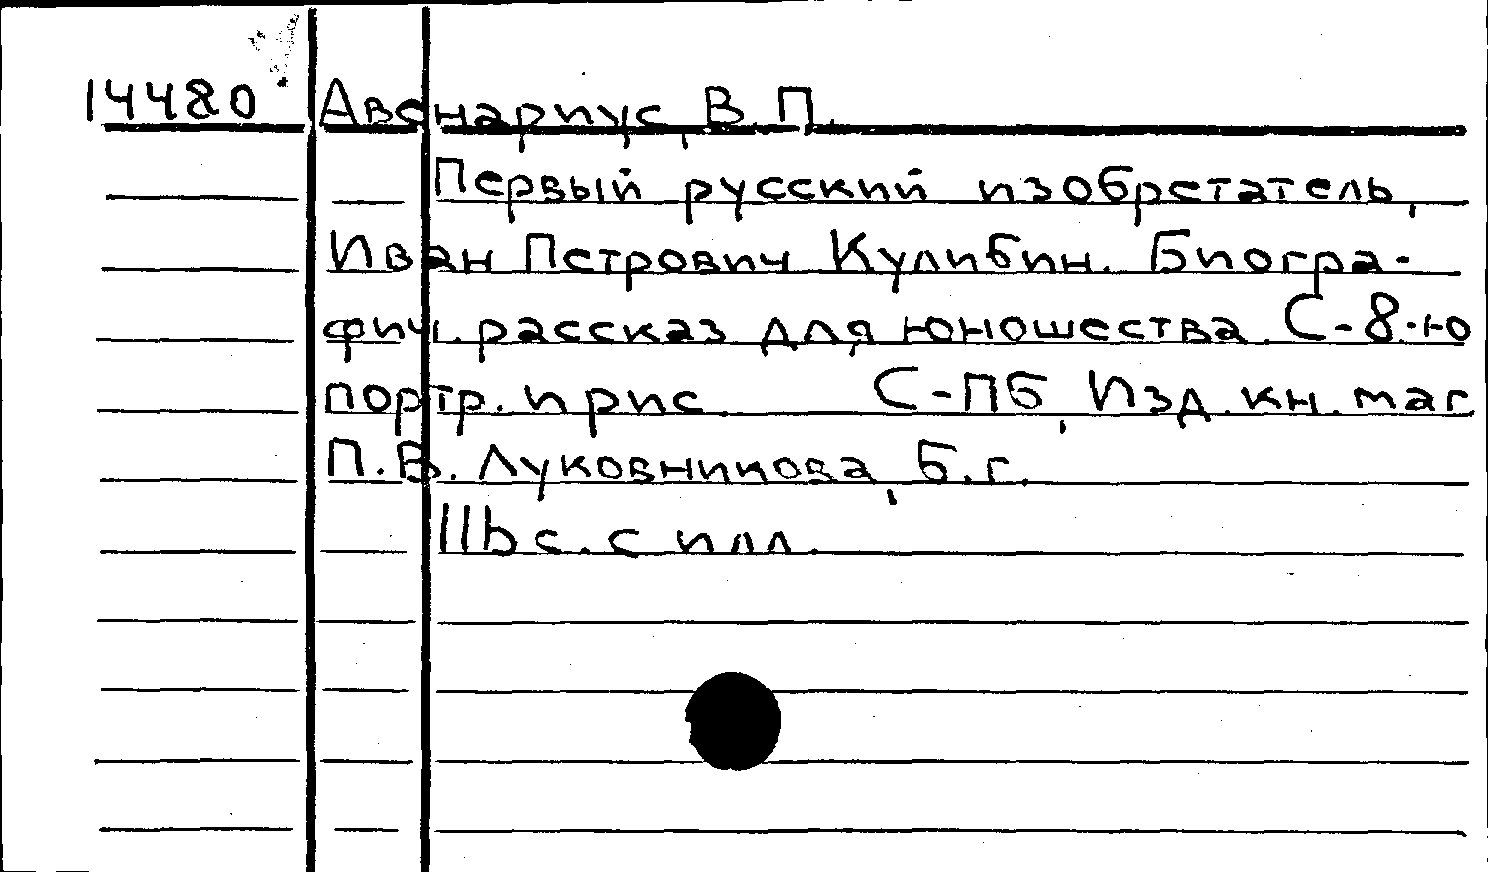 14480 Авенариус, В.П.
Первый русский изобретатель,
Иван Петрович Кулибин. Биогра-
фич. рассказ для юношества. С-8-ю
портр. и рис. С-ПБ, Изд. кн. маг
П.В. Луковникова, б.г.
116 с. с илл.